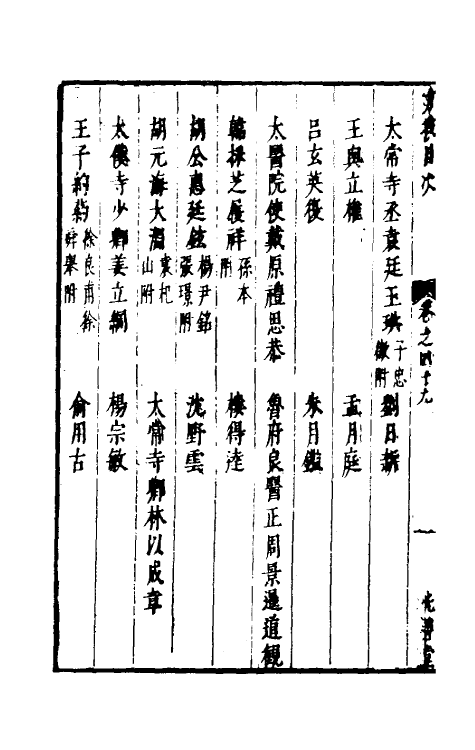 卷之四十九
太常寺丞袁廷玉珙 子忠徹附 劉日新
王與立權 孟月庭
呂玄英復 朱月鑑
太醫院使戴原禮思恭 魯府良醫正周景遠道觀
孫本附 樓得達
胡廷鉉 楊尹銘 張璟附 沈野雲
胡元海大淵 袁杞山附 太常寺卿林以成韋
太僕寺少卿姜立綱 楊宗敏
王子約 徐良甫 徐 舉附 俞用古